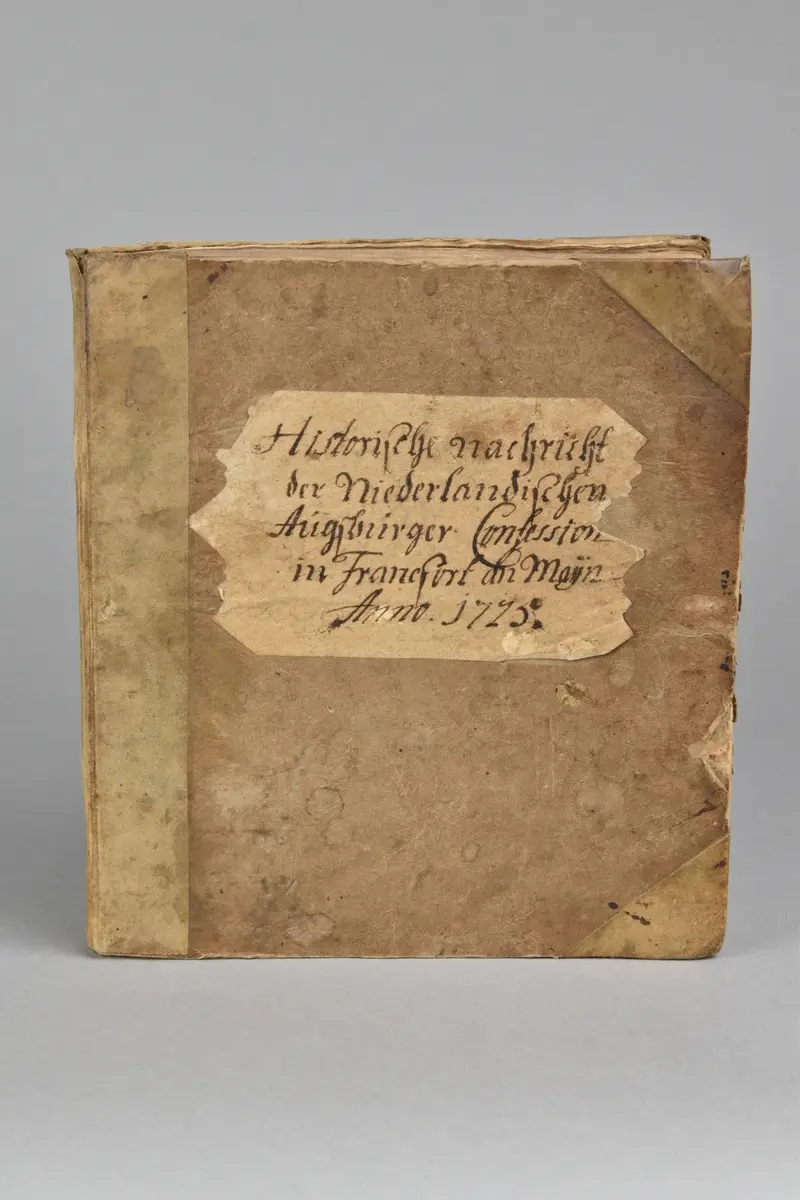 Historische nachricht
der Niederlandischen
Augsburger Confession
in Francfort an Mayn
Anno. 1775.